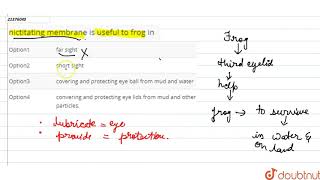 21376043
nictitating membrane is useful to frog in
Option1 far sight X
Option2 short sight
Option3 convering and protecting eye ball from mud and water
Option4 convering and protecting eye lids from mud and other
particles.
• lubricate = eye
• provide = protection.
Frog
third eyelid
help
frog → to survive
in water &
on land
doubtnut